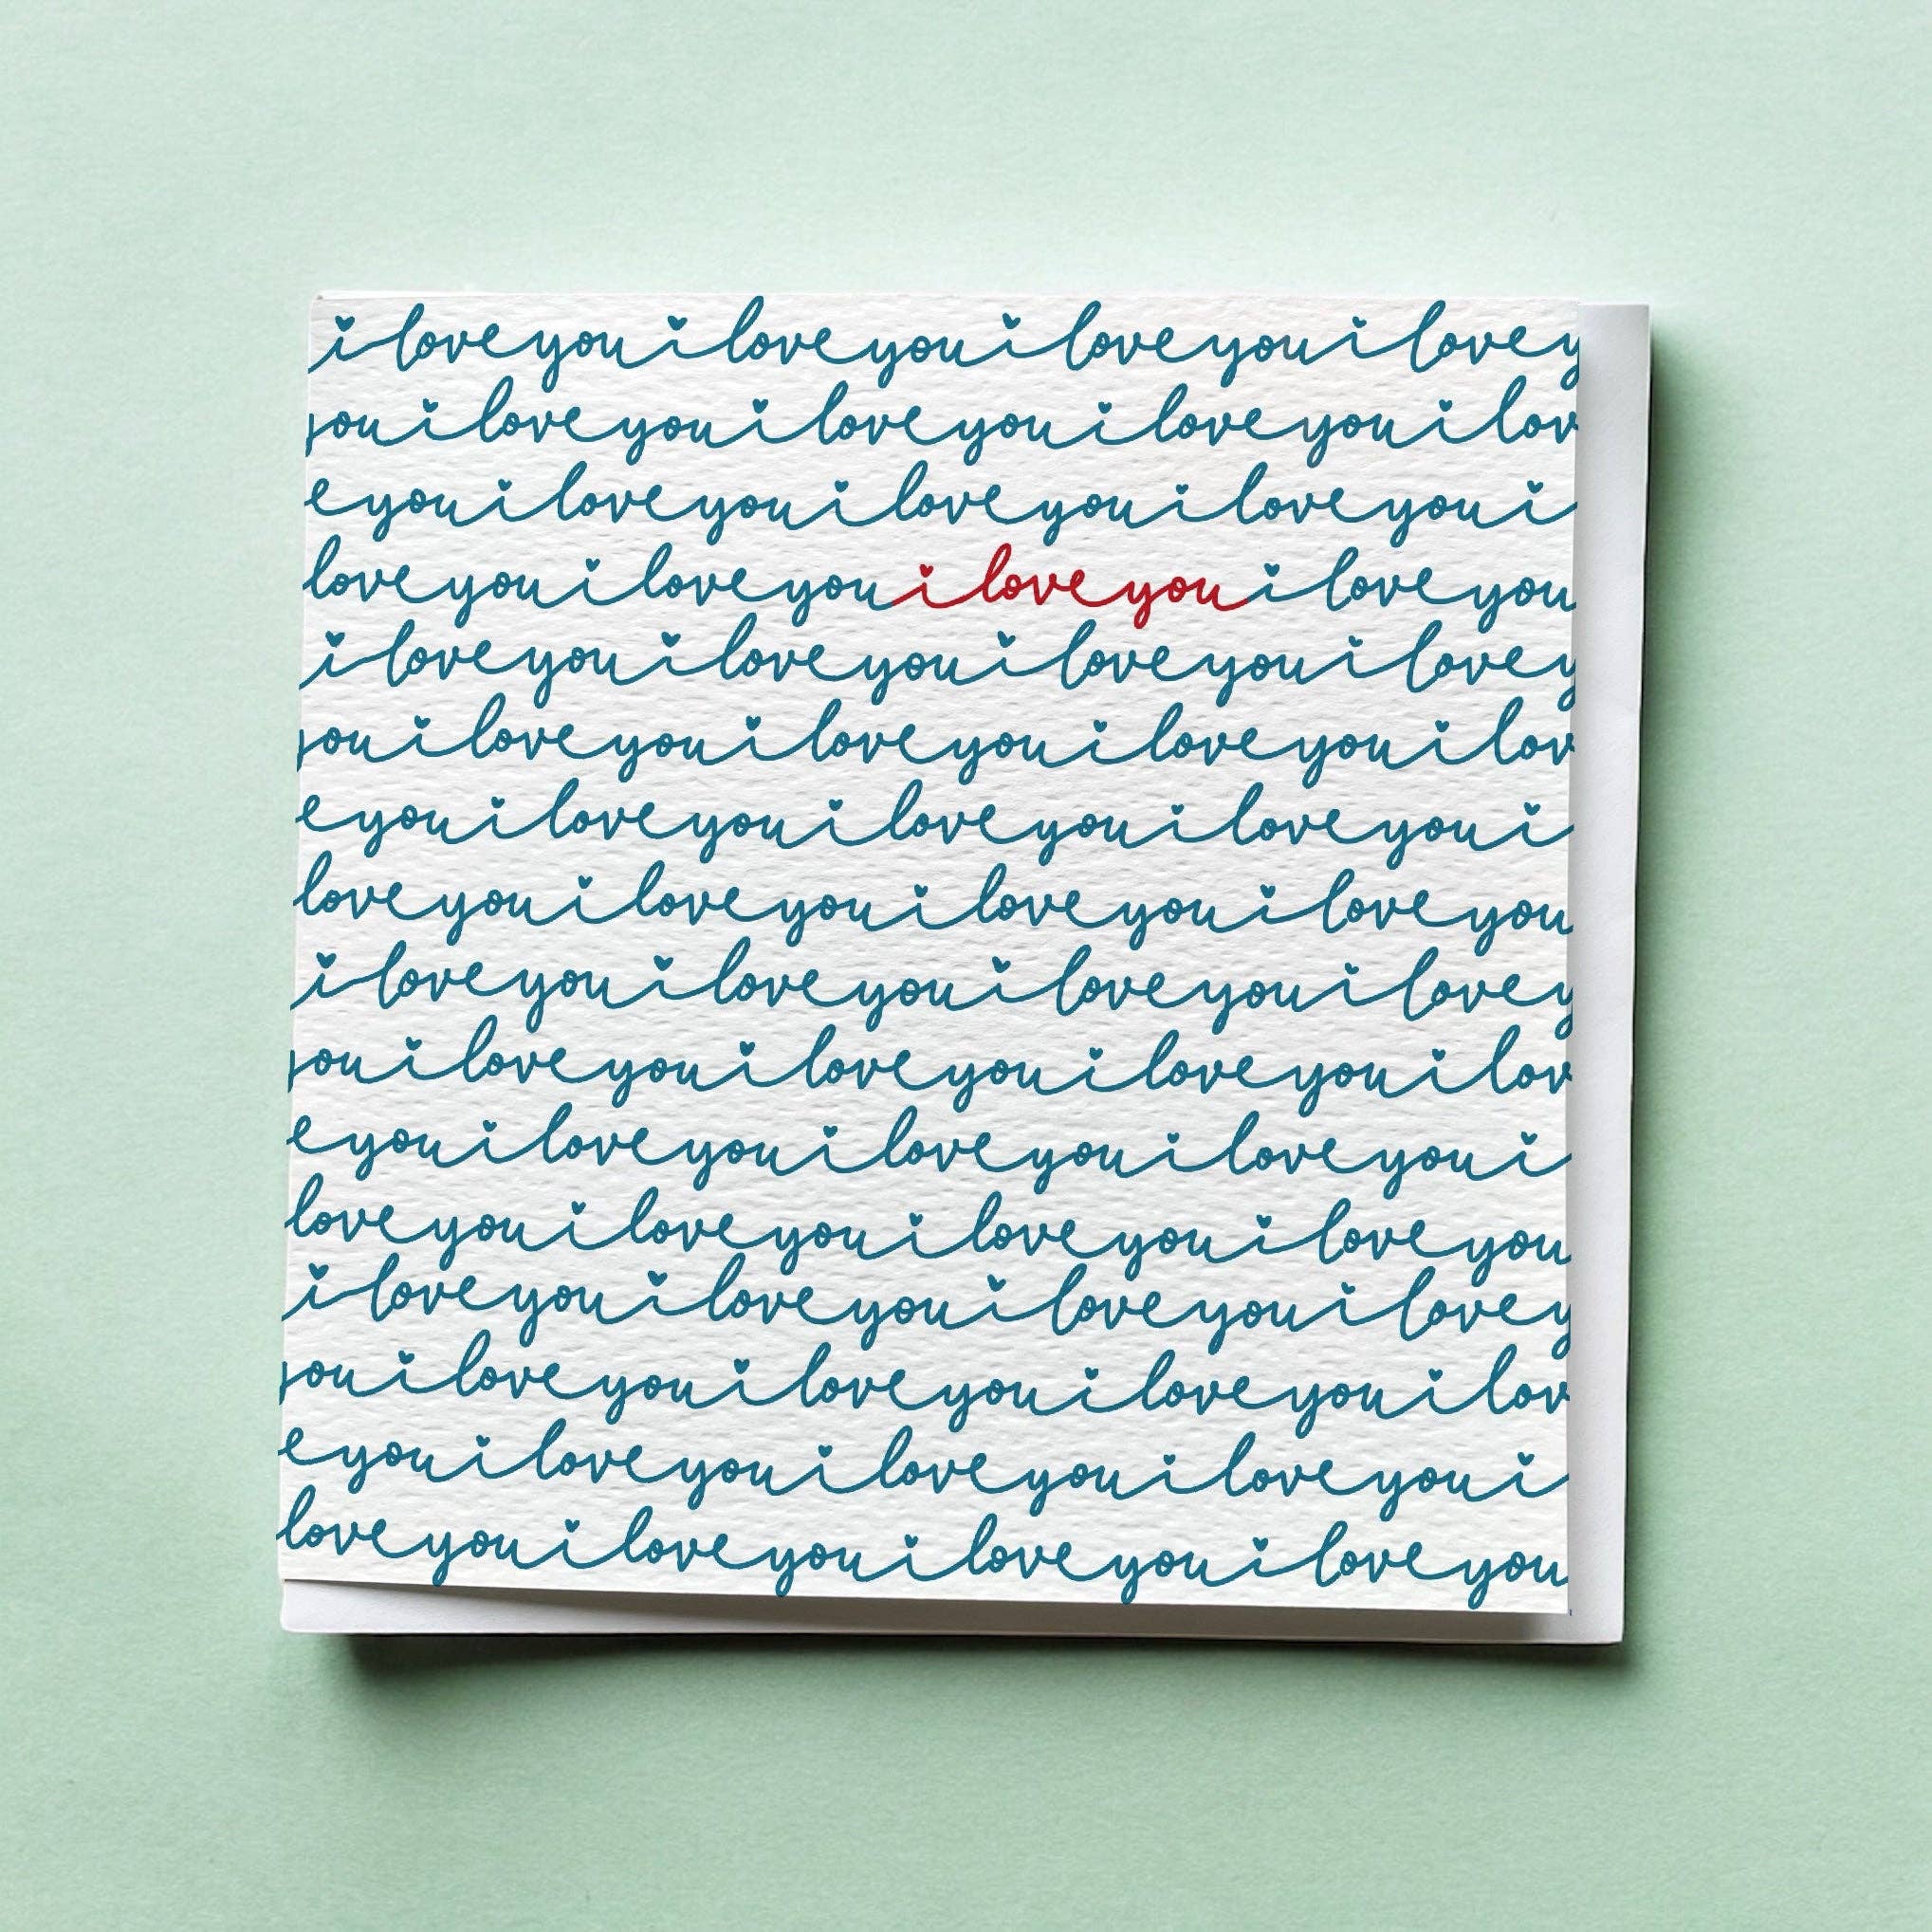 i love you i love you i love you i love y
you i love you i love you i love you i lov
e you i love you i love you i love you i
love you i love you i love you i love you
i love you i love you i love you i love y
you i love you i love you i love you i lov
e you i love you i love you i love you i
love you i love you i love you i love you
i love you i love you i love you i love y
you i love you i love you i love you i lov
e you i love you i love you i love you i
love you i love you i love you i love you
i love you i love you i love you i love y
you i love you i love you i love you i lov
e you i love you i love you i love you i
love you i love you i love you i love you